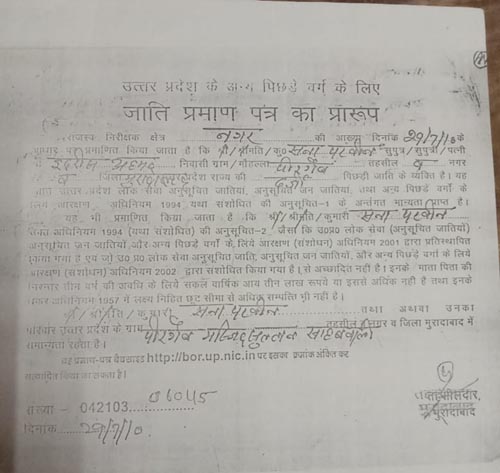 उत्तर प्रदेश के अन्य पिछड़े वर्ग के लिए
जाति प्रमाण पत्र का प्रारूप
राजस्व निरीक्षक क्षेत्र नगर की आख्या दिनांक 29/7/10 के
आधार पर प्रमाणित किया जाता है कि श्री/श्रीमति/कु० सना परवीन सुपुत्र/सुपुत्री/पत्नी
निवासी ग्राम/मौहल्ला पीरगैब तहसील व नगर
व जिला मुरादाबाद प्रदेश राज्य की पिछड़ी जाति के व्यक्ति है। यह
जाति उत्तर प्रदेश लोक सेवा अनुसूचित जातियां, अनुसूचित जन जातियां, तथा अन्य पिछड़े वर्गो के
लिये आरक्षण अधिनियम 1994 यथा संशोधित की अनुसूचित-1 के अन्तंगत मान्यता प्राप्त है।
यह भी प्रमाणित किया जाता है कि श्री/श्रीमति/कुमारी सना परवीन
उक्त अधिनियम 1994 (यथा संशोधित) की अनुसूचित-2 जैसा कि उ०प्र० लोक सेवा (अनुसूचित जातियों)
अनुसूचित जन जातियों और अन्य पिछड़े वर्गो के लिये आरक्षण (संशोधन) अधिनियम 2001 द्वारा प्रतिस्थापित
किया गया है एवं जो उ०प्र० लोक सेवा अनुसूचित जाति, अनुसूचित जन जातियों, और अन्य पिछड़े वर्गो के लिये
आरक्षण (संशोधन) अधिनियम 2002 द्वारा संशोधित किया गया है। से अच्छादित नहीं है। इनके माता पिता की
निरन्तर तीन वर्ष की अवधि के लिये सकल वार्षिक आय तीन लाख रूपये या इससे अधिक नहीं है तथा इनके
अधिनियम 1957 में लक्ष्य निहित छूट सीमा से अधिक सम्पत्ति भी नहीं है।
श्री/श्रीमति/कुमारी सना परवीन तथा अथवा उनका
परिवार उत्तर प्रदेश के ग्राम पीरगैब मस्जिद सुल्तान साहब वाली तहसील व नगर व जिला मुरादाबाद में
सामान्यतः रखता है।
यह प्रमाण-पत्र वेबसाईड http://bor.up.nic.in पर इसका क्रमांक अंकित कर
सत्यापित किया जा सकता है।
संख्या - 042103 06045
दिनांक 29/7/10
तहसीलदार,
मुरादाबाद